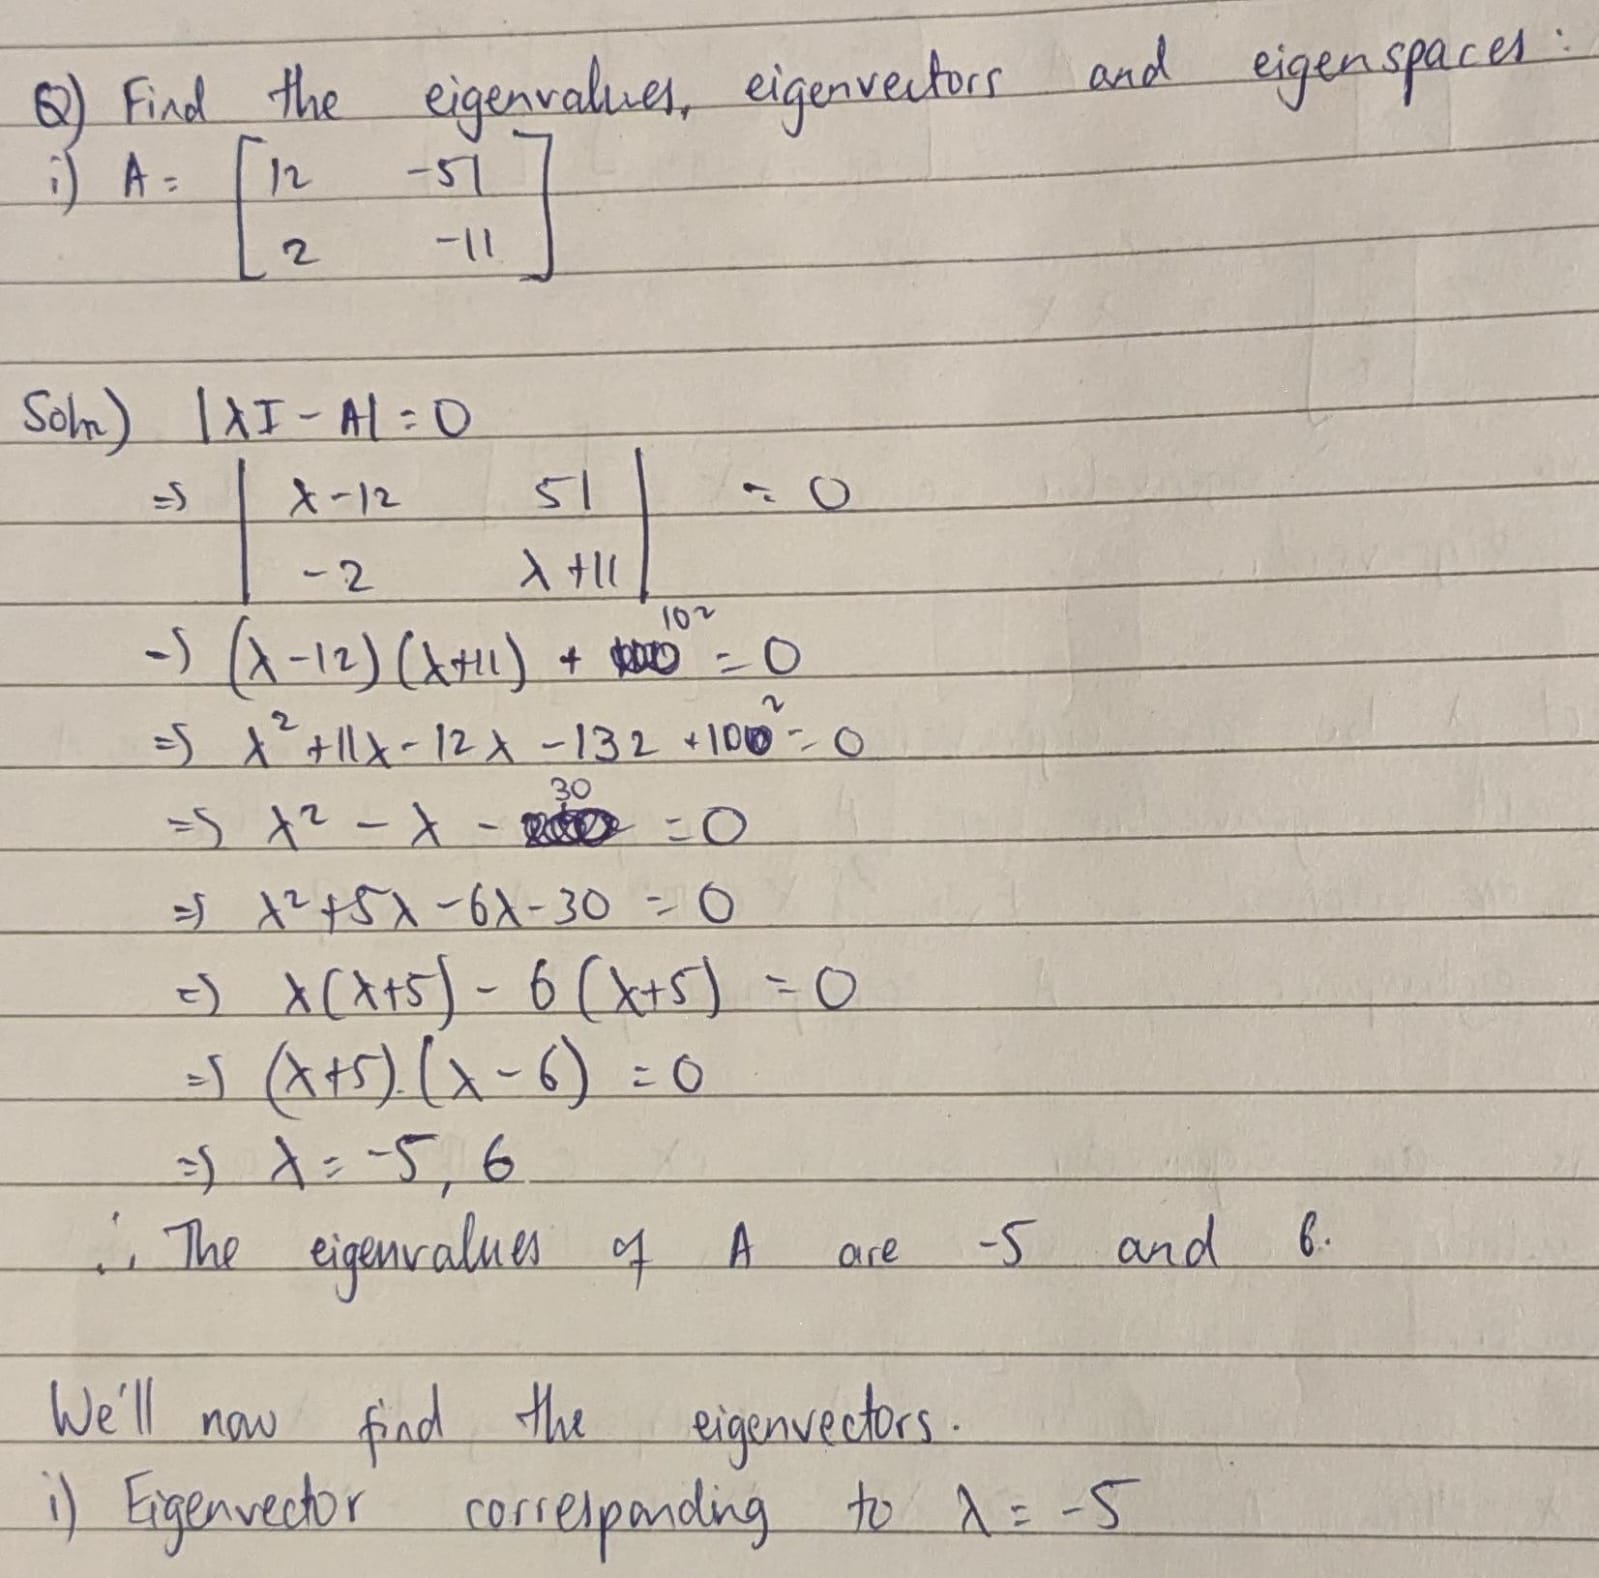 Q) Find the eigenvalues, eigenvectors and eigenspaces:
i) A = [12 -51
2 -11]
Soln) |λI - A| = 0
=> | λ-12 51 | = 0
| -2 λ+11 |
=> (λ-12)(λ+11) + 102 = 0
=> λ² + 11λ - 12λ - 132 + 102 = 0
=> λ² - λ - 30 = 0
=> λ² + 5λ - 6λ - 30 = 0
=> λ(λ+5) - 6(λ+5) = 0
=> (λ+5).(λ-6) = 0
=> λ = -5, 6
∴ The eigenvalues of A are -5 and 6.
We'll now find the eigenvectors.
i) Eigenvector corresponding to λ = -5